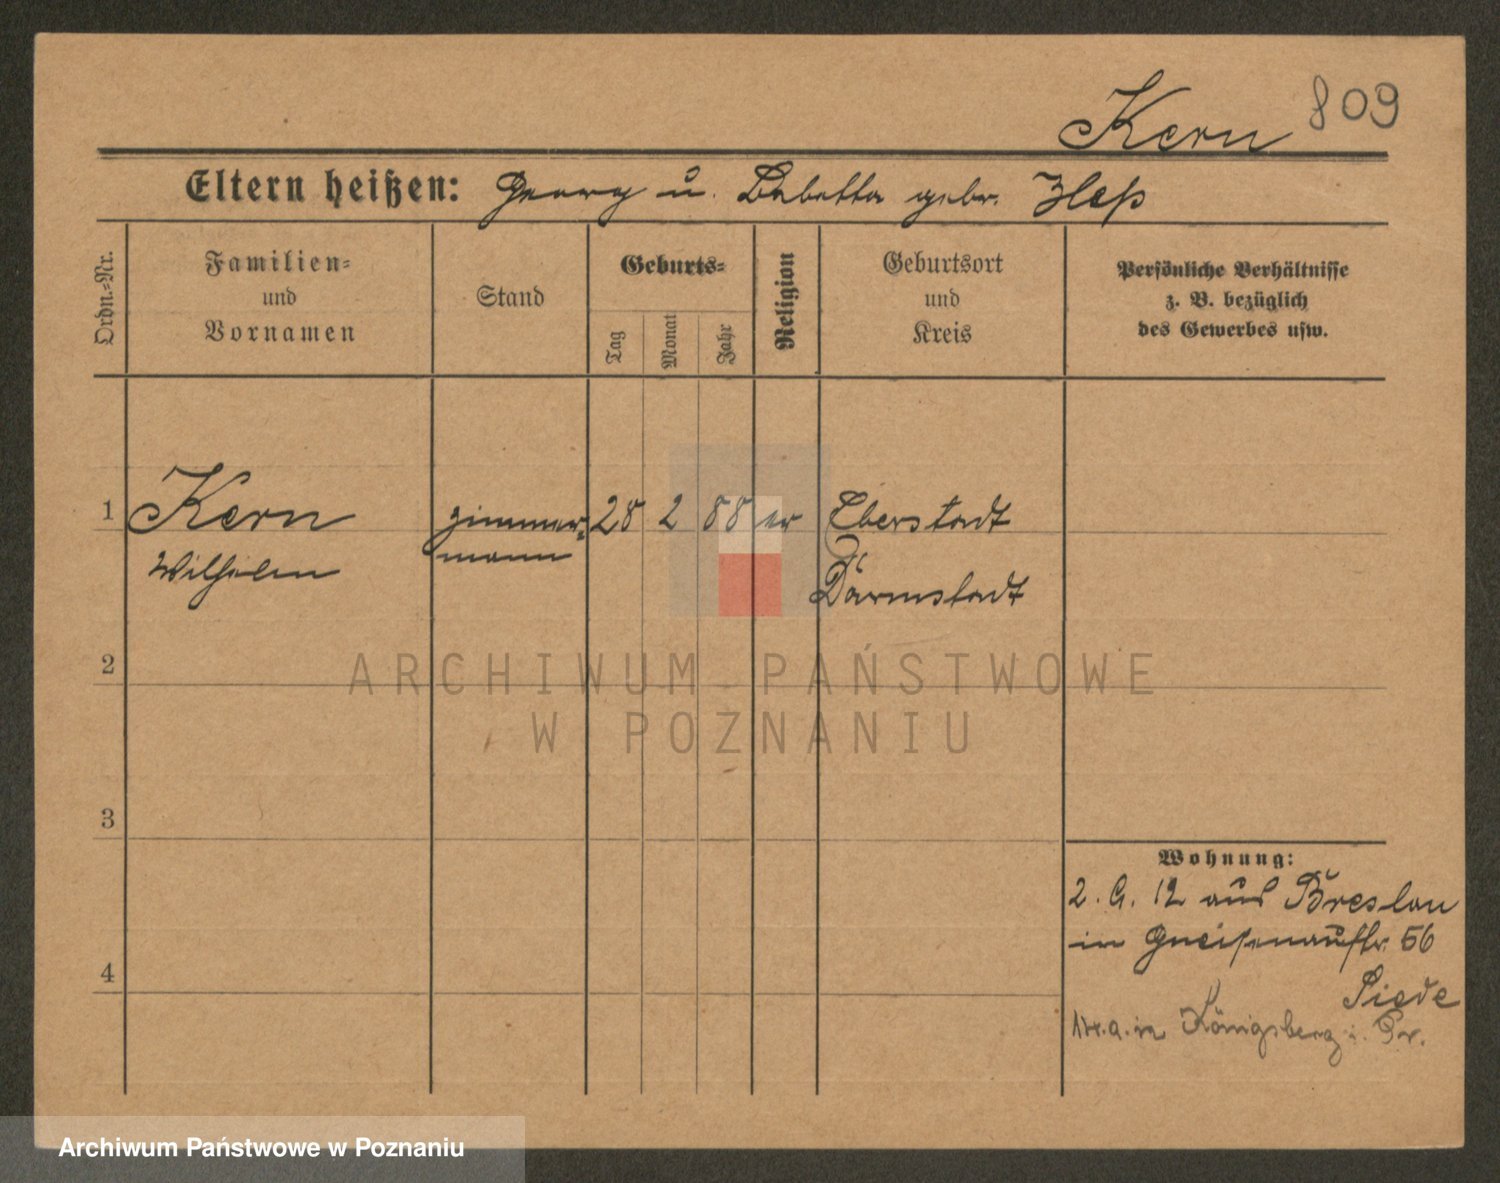 Kern 809
Eltern heißen: Georg u. Babetta gebr. Heß
Ordn.-Nr.
Familien-
und
Vornamen
Stand
Geburts-
Tag
Monat
Jahr
Religion
Geburtsort
und
Kreis
Persönliche Verhältnisse
z. B. bezüglich
des Gewerbes usw.
1 Kern zimmer- 28 2 88 ev Eberstadt
Wilhelm mann
Darmstadt
2
3
4
Wohnung:
2. 9. 12 aus Breslau
in Gneisenaustr. 56
Siede
in Königsberg i. Pr.
ARCHIWUM PAŃSTWOWE
W POZNANIU
Archiwum Państwowe w Poznaniu